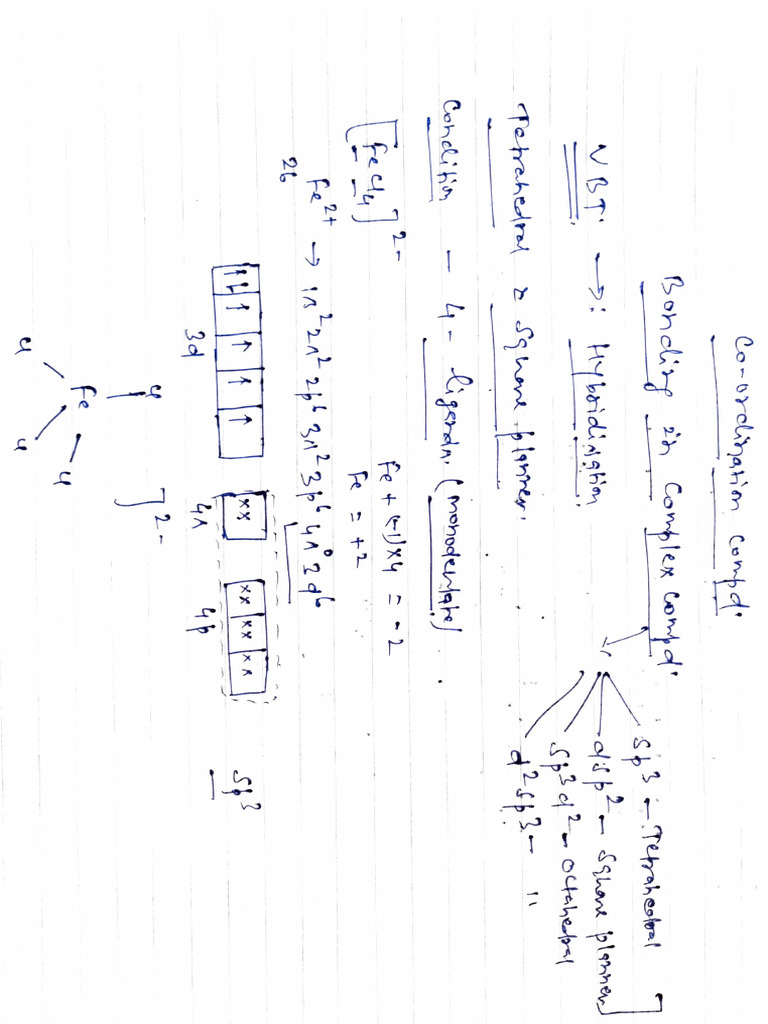 Co-ordination Compd.
Bonding in Complex Compd.
VBT. →: Hybridisation
sp³ - Tetrahedral
dsp² - Square planner
sp³d² - octahedral
d²sp³ - "
Tetrahedral & Square planner.
Condition - 4 - ligands. (monodentate)
[FeCl4]²⁻
Fe + (-1)×4 = -2
Fe = +2
26 Fe²⁺ → 1s² 2s² 2p⁶ 3s² 3p⁶ 4s⁰ 3d⁶
↑↓ ↑ ↑ ↑ ↑ xx xx xx xx sp³
3d 4s 4p
Cl
Cl Fe ]²⁻
Cl Cl